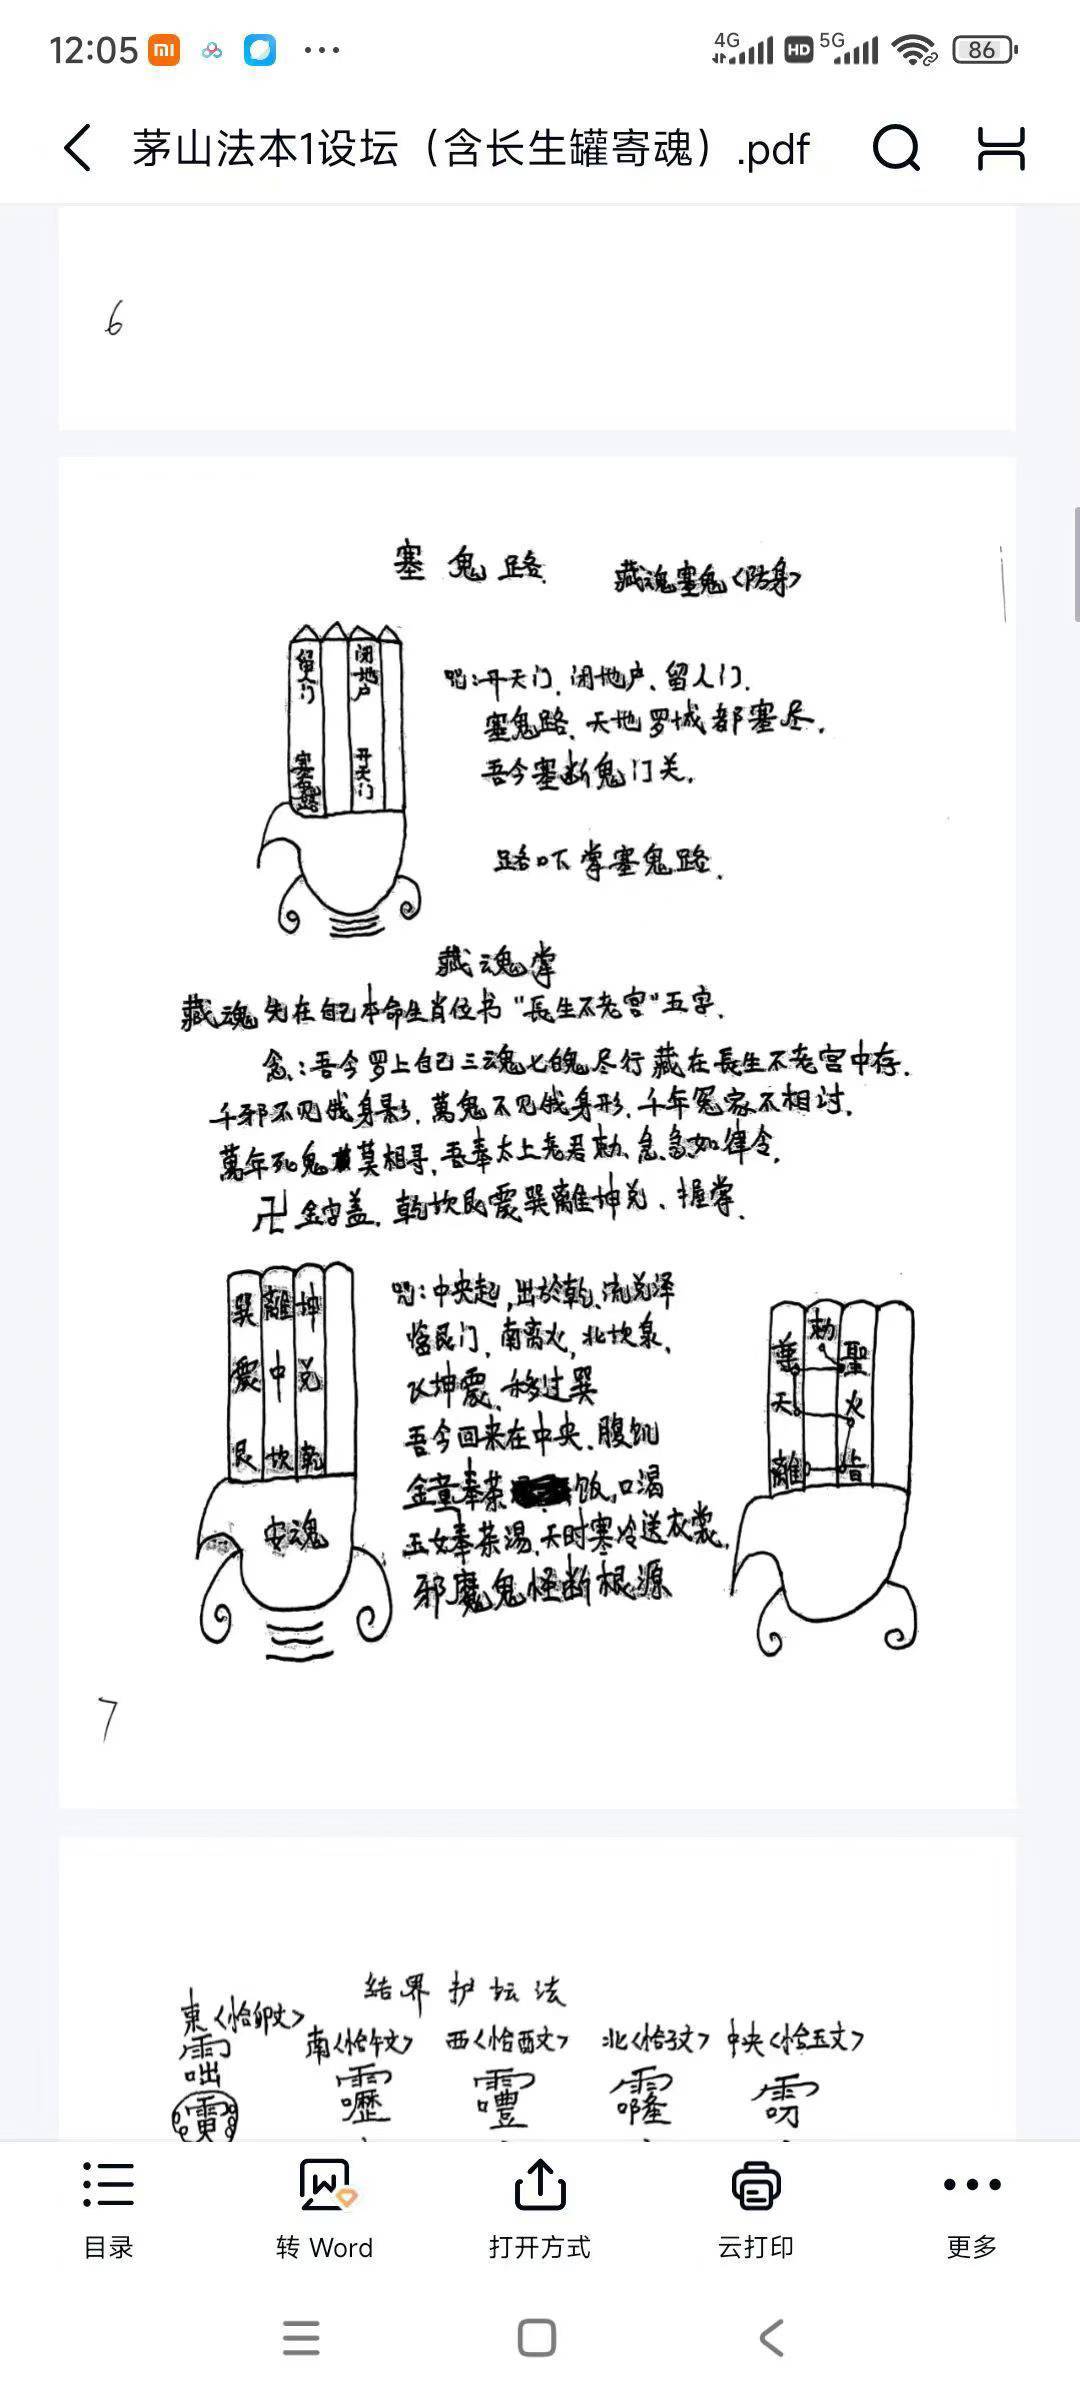 12:05
4G HD 5G 86
茅山法本1设坛（含长生罐寄魂）.pdf
6
塞鬼路 藏魂塞鬼<防身>
留人门
闭地户
塞鬼路
开天门
咒:开天门、闭地户、留人门.
塞鬼路、天地罗城都塞尽.
吾今塞断鬼门关.
路吓掌塞鬼路.
藏魂掌
藏魂先在自己本命生肖位书"長生不老宫"五字.
念:吾今罗上自己三魂七魄尽行藏在長生不老宫中存.
千邪不见俄身影.萬鬼不见俄身形.千年冤家不相讨.
萬年死鬼莫相寻.吾奉太上老君勅、急急如律令.
卍金字盖.乾坎艮震巽離坤兑、握掌.
巽 離 坤
震 中 兑
艮 坎 乾
安魂
咒:中央起,出於乾、流兑泽
艮门,南离火,北坎泉、
坤震、移过巽
吾今回来在中央、腹饥
金童奉茶饭,口渴
玉女奉茶湯、天时寒冷送衣裳、
邪魔鬼怪断根源
勅
尊 聖
天 火
離
7
结界护坛法
東<恰卯文>
南<恰午文> 西<恰酉文> 北<恰子文> 中央<恰玉文>
目录 转 Word 打开方式 云打印 更多